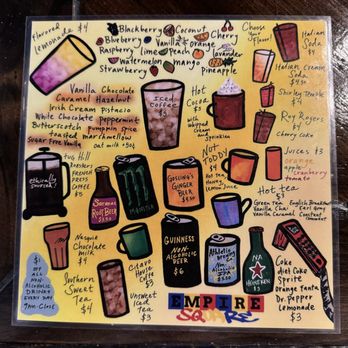 flavored
lemonade $4
Blackberry Coconut
Blueberry Vanilla orange Cherry
Raspberry lime Peach
watermelon mango
Strawberry pineapple
Choose
Your
flavor!
Italian
Soda
$4
Italian Cream
Soda
$4.50
Shirley Temple
$4
Roy Rogers
$4
Cherry Coke
Vanilla Chocolate
Caramel Hazelnut
Irish Cream Pistacio
White Chocolate Peppermint
Butterscotch pumpkin spice
Toasted marshmallow
Sugar Free Vanilla
oat milk +50¢
Iced
Coffee
$3
Hot
Cocoa
with
whipped
cream
and
sprinkles
Juices $3
orange
apple
cranberry
tomato
ethically
sourced!
Tug Hill
Roasters
French
Press
Coffee
$5
Saranac
Root Beer
Gosling's
Ginger
Beer
Hot
Toddy
$4
Hot tea
honey
lemon Juice
Hot tea
Green Tea English Breakfast
Vanilla Chai Earl Grey
Vanilla Caramel Constant
Comment
Nesquik
Chocolate
milk
$4
Guinness
Non-
Alcoholic
Beer
$6
Athletic
Brewing
Non-
Alcoholic
NA
Heineken
$5
$1
off
all
Non
Alcoholic
Drinks
Every Day
7am-Close
Southern
Sweet
Tea
$4
Unsweet
Iced
Tea
$3
Coke
diet Coke
Sprite
orange Fanta
Dr. Pepper
Lemonade
$3
EMPIRE
SQUARE